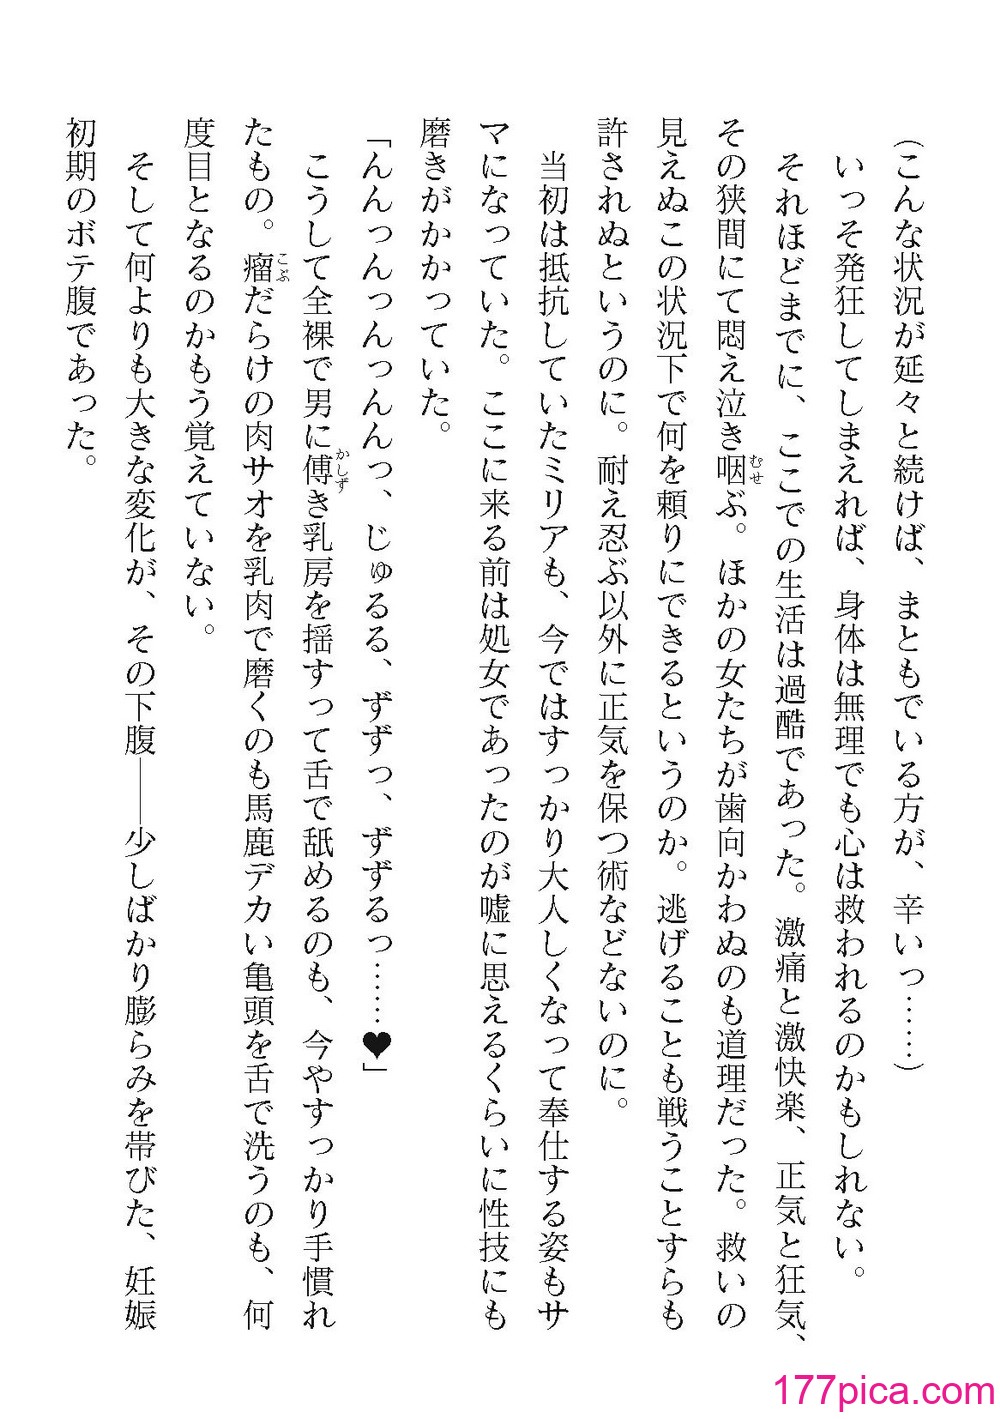 （こんな状況が延々と続けば、まともでいる方が、辛いっ……）
いっそ発狂してしまえれば、身体は無理でも心は救われるのかもしれない。
それほどまでに、ここでの生活は過酷であった。激痛と激快楽、正気と狂気、
むせ
その狭間にて悶え泣き咽ぶ。ほかの女たちが歯向かわぬのも道理だった。救いの
見えぬこの状況下で何を頼りにできるというのか。逃げることも戦うことすらも
許されぬというのに。耐え忍ぶ以外に正気を保つ術などないのに。
当初は抵抗していたミリアも、今ではすっかり大人しくなって奉仕する姿もサ
マになっていた。ここに来る前は処女であったのが嘘に思えるくらいに性技にも
磨きがかかっていた。
「んんっんっんっんんっ、じゅるる、ずずっ、ずずるっ……♥」
かしず
こうして全裸で男に傅き乳房を揺すって舌で舐めるのも、今やすっかり手慣れ
こぶ
たもの。瘤だらけの肉サオを乳肉で磨くのも馬鹿デカい亀頭を舌で洗うのも、何
度目となるのかもう覚えていない。
そして何よりも大きな変化が、その下腹――少しばかり膨らみを帯びた、妊娠
初期のボテ腹であった。
177pica.com